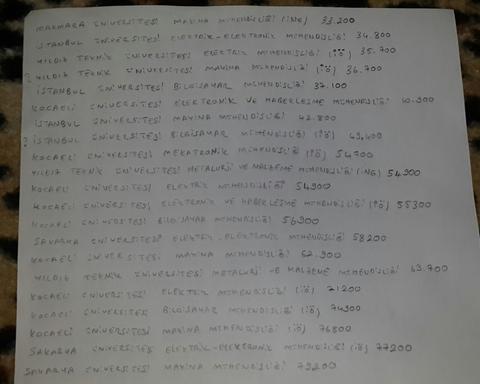 MARMARA ÜNİVERSİTESİ MAKİNA MÜHENDİSLİĞİ (İNG) 33.200
İSTANBUL ÜNİVERSİTESİ ELEKTRİK-ELEKTRONİK MÜHENDİSLİĞİ 34.800
YILDIZ TEKNİK ÜNİVERSİTESİ ELEKTRİK MÜHENDİSLİĞİ (İÖ) 35.700
? YILDIZ TEKNİK ÜNİVERSİTESİ MAKİNA MÜHENDİSLİĞİ (İÖ) 36.700
İSTANBUL ÜNİVERSİTESİ BİLGİSAYAR MÜHENDİSLİĞİ 37.100
KOCAELİ ÜNİVERSİTESİ ELEKTRONİK VE HABERLEŞME MÜHENDİSLİĞİ
İSTANBUL ÜNİVERSİTESİ MAKİNA MÜHENDİSLİĞİ 42.800
? İSTANBUL ÜNİVERSİTESİ BİLGİSAYAR MÜHENDİSLİĞİ (İÖ)
KOCAELİ ÜNİVERSİTESİ MEKATRONİK MÜHENDİSLİĞİ
YILDIZ TEKNİK ÜNİVERSİTESİ METALURJİ VE MALZEME MÜHENDİSLİĞİ (İNG) 54.900
KOCAELİ ÜNİVERSİTESİ ELEKTRİK MÜHENDİSLİĞİ 54900
KOCAELİ ÜNİVERSİTESİ ELEKTRONİK VE HABERLEŞME MÜHENDİSLİĞİ (İÖ) 55300
KOCAELİ ÜNİVERSİTESİ BİLGİSAYAR MÜHENDİSLİĞİ 56900
SAKARYA ÜNİVERSİTESİ ELEKTRİK-ELEKTRONİK MÜHENDİSLİĞİ 58200
KOCAELİ ÜNİVERSİTESİ MAKİNA MÜHENDİSLİĞİ 62.900
YILDIZ TEKNİK ÜNİVERSİTESİ METALURJİ VE MALZEME MÜHENDİSLİĞİ 63.700
KOCAELİ ÜNİVERSİTESİ ELEKTRİK MÜHENDİSLİĞİ (İÖ) 71200
KOCAELİ ÜNİVERSİTESİ BİLGİSAYAR MÜHENDİSLİĞİ (İÖ) 74900
KOCAELİ ÜNİVERSİTESİ MAKİNA MÜHENDİSLİĞİ (İÖ) 76800
SAKARYA ÜNİVERSİTESİ ELEKTRİK-ELEKTRONİK MÜHENDİSLİĞİ (İÖ) 77200
SAKARYA ÜNİVERSİTESİ MAKİNA MÜHENDİSLİĞİ 79200